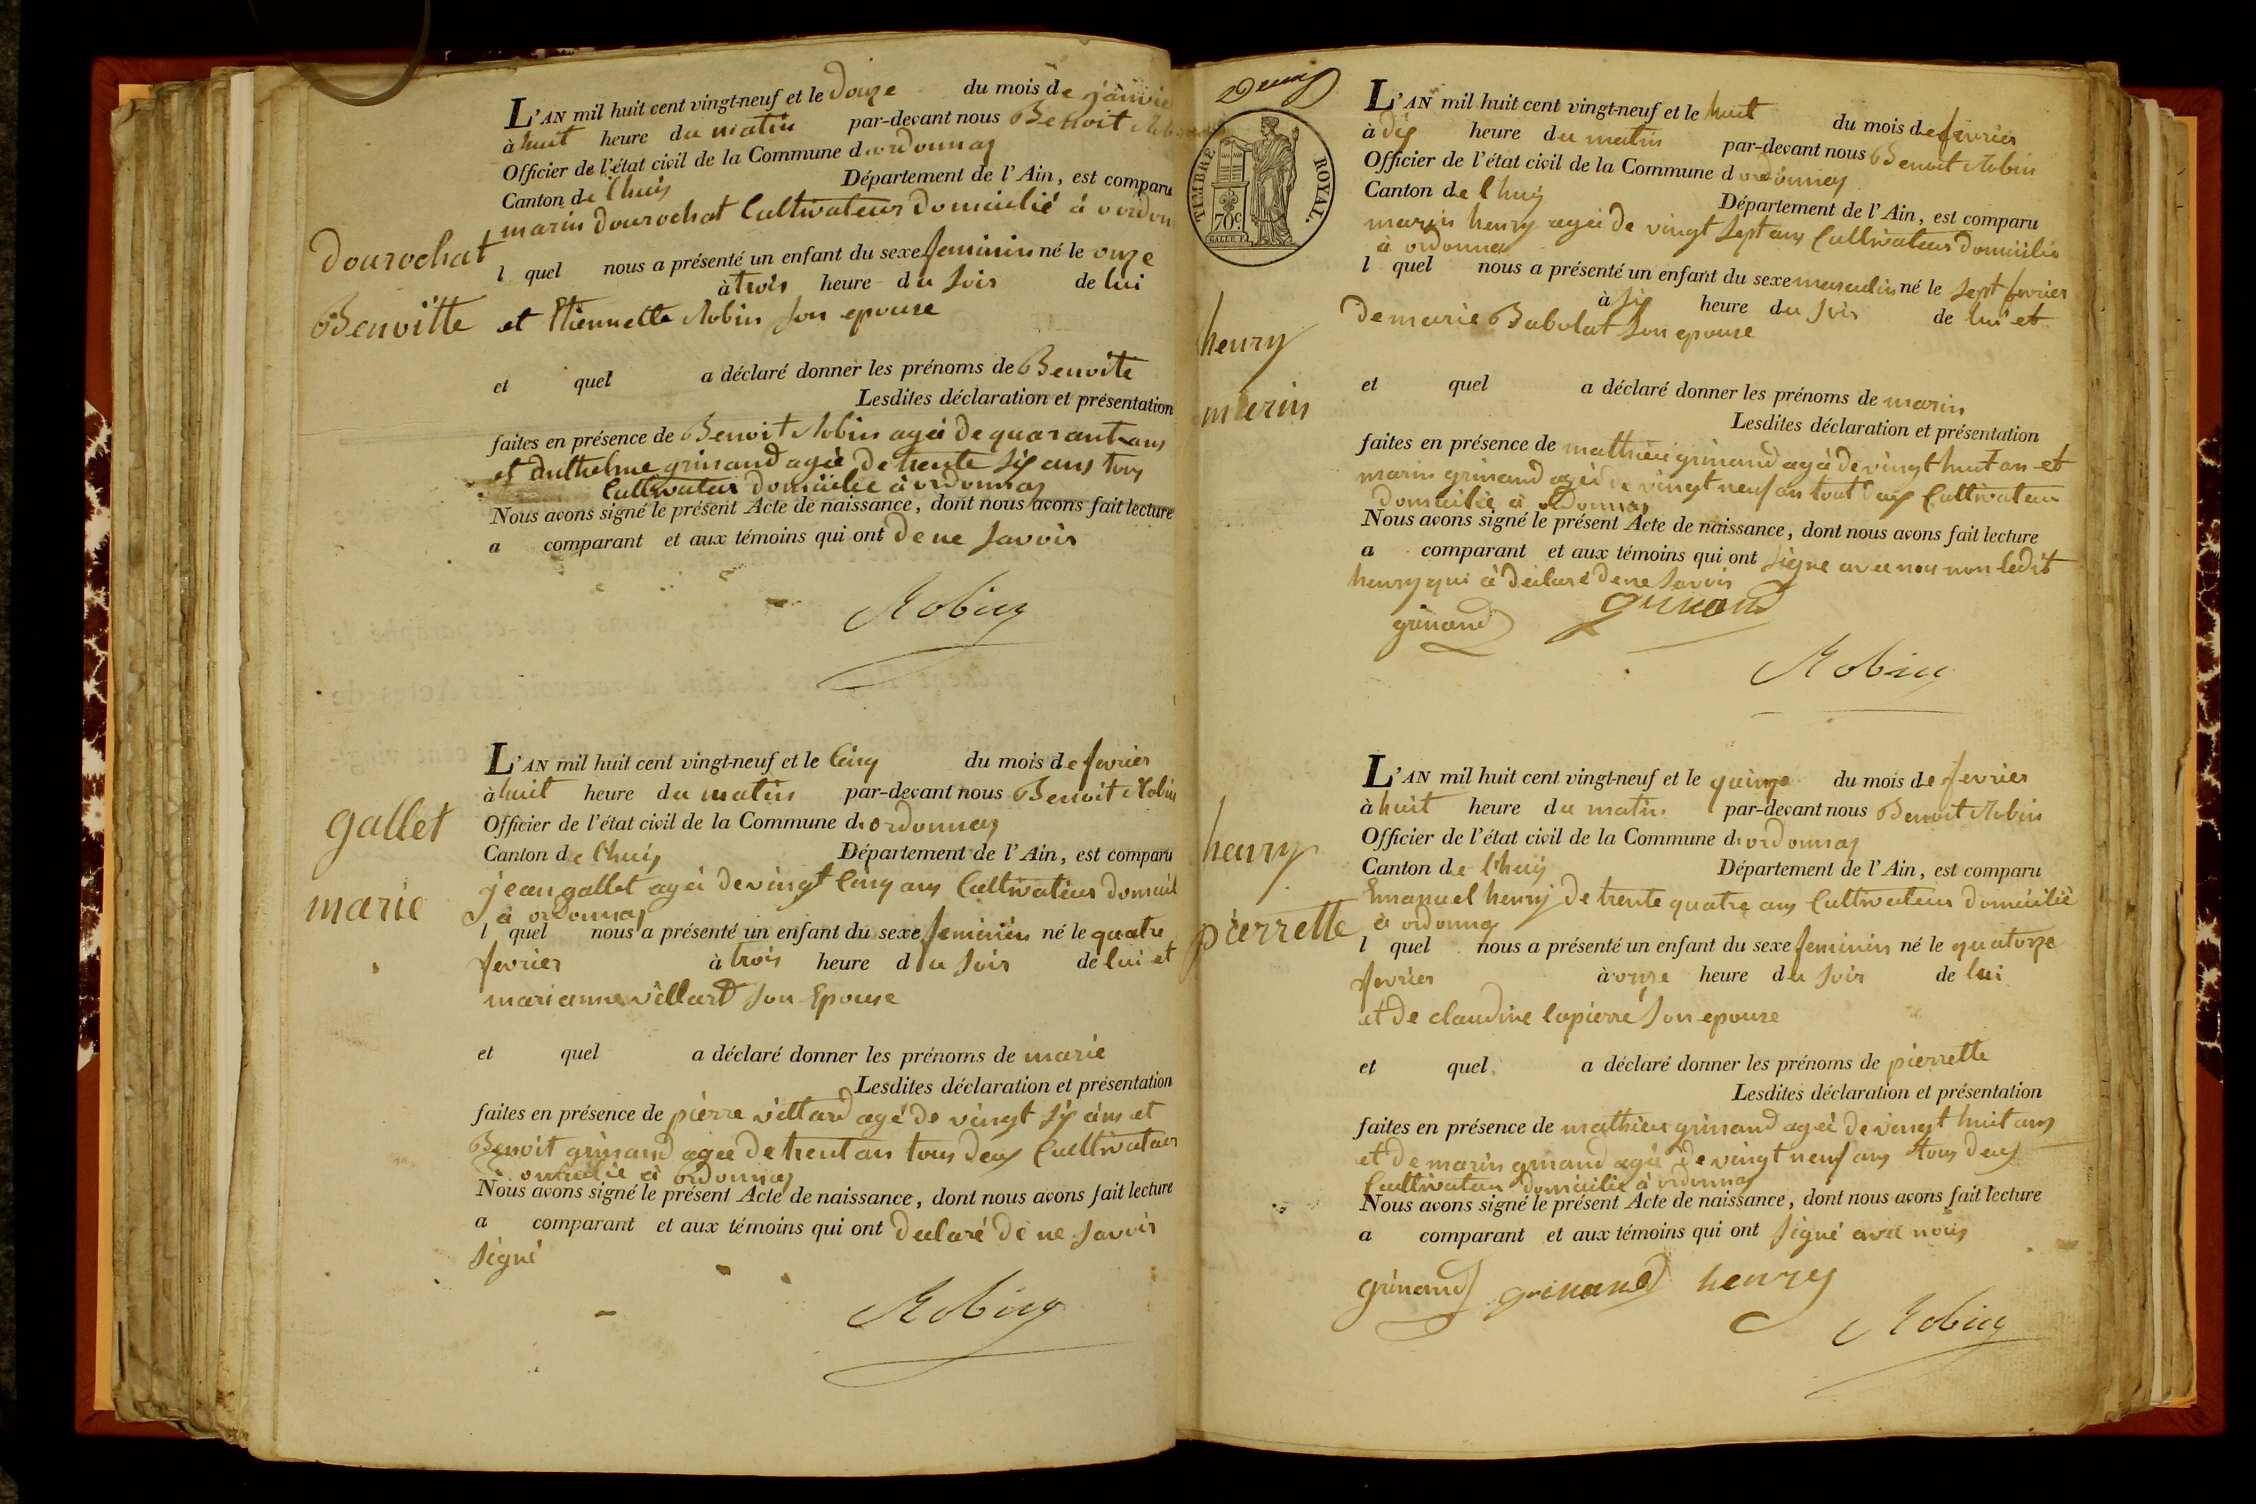 L'AN mil huit cent vingt-neuf et le douze du mois de janvie
à huit heure du matin par-devant nous Benoit Robin
Officier de l'état civil de la Commune d'ordonnas
Canton de lhuis Département de l'Ain, est comparu
marin dourochat Cultivateur domicilié à ordon
dourochat
l quel nous a présenté un enfant du sexe feminin né le onze
à trois heure du soir de lui
Benoitte
et Etiennette Robin son epouse
et quel a déclaré donner les prénoms de Benoite
Lesdites déclaration et présentation
faites en présence de Benoit Robin agé de quarant ans
et anthelme grinand agée de trente six ans tous
Cultivateur domicilié à ordonnas
Nous avons signé le présent Acte de naissance, dont nous avons fait lecture
a comparant et aux témoins qui ont de ne savoir
Robin
L'AN mil huit cent vingt-neuf et le cinq du mois de fevrier
à huit heure du matin par-devant nous Benoit Robin
gallet
Officier de l'état civil de la Commune d'ordonnas
Canton de lhuis Département de l'Ain, est comparu
marie
jean gallet agéi de vingt cinq ans Cultivateur domicil
à ordonnas
l quel nous a présenté un enfant du sexe feminin né le quatre
fevrier à trois heure du soir de lui et
marianne villard son Epouse
et quel a déclaré donner les prénoms de marie
Lesdites déclaration et présentation
faites en présence de pierre villard agé de vingt six ans et
Benoit grinand agée de trent an tous deux Cultivateur
domicilié à ordonnas
Nous avons signé le présent Acte de naissance, dont nous avons fait lecture
a comparant et aux témoins qui ont declaré de ne savoir
signé
Robin
Deux
TIMBRE ROYAL.
70 c
L'AN mil huit cent vingt-neuf et le huit du mois de fevrier
à dix heure du matin par-devant nous Benoit Robin
Officier de l'état civil de la Commune d'ordonnas
Canton de lhuis Département de l'Ain, est comparu
marin henry agéi de vingt sept ans Cultivateur domicilié
à ordonnas
l quel nous a présenté un enfant du sexe masculin né le sept fevrier
à six heure du soir de lui et
henry
de marie Babolat son epouse
et quel a déclaré donner les prénoms de marin
marin
Lesdites déclaration et présentation
faites en présence de mathieu grinand agé de vingt huit an et
marin grinand agé de vingt neuf an tout deux Cultivateur
domicilié à ordonnas
Nous avons signé le présent Acte de naissance, dont nous avons fait lecture
a comparant et aux témoins qui ont signe avec nou non ledit
henry qui à déclaré de ne savoir
grinand grinand
Robin
L'AN mil huit cent vingt-neuf et le quinze du mois de fevrier
à huit heure du matin par-devant nous Benoit Robin
Officier de l'état civil de la Commune d'ordonnas
henry
Canton de lhuis Département de l'Ain, est comparu
Emanuel henry de trente quatre ans Cultivateur domicilié
à ordonnas
pierrette
l quel nous a présenté un enfant du sexe feminin né le quatorze
fevrier à onze heure du soir de lui
et de claudine lapierre son epouse
et quel a déclaré donner les prénoms de pierrette
Lesdites déclaration et présentation
faites en présence de mathieu grinand agéi de vingt huit ans
et de marin grinand agé de vingt neuf ans tous deux
Cultivateur domicilié à ordonnas
Nous avons signé le présent Acte de naissance, dont nous avons fait lecture
a comparant et aux témoins qui ont signé avec nous
grinand grinand henry
Robin